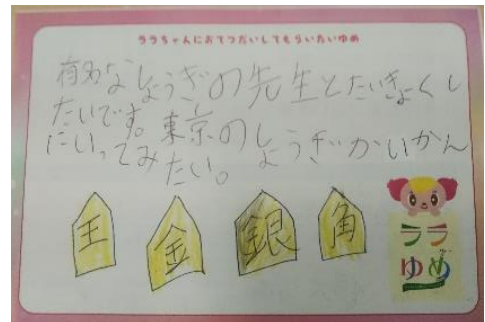 ララちゃんにおてつだいしてもらいたいゆめ
有名なしょうぎの先生とたいきょくし
たいです。東京のしょうぎかいかん
にいってみたい。
王
金
銀
角
ララ
ゆめ